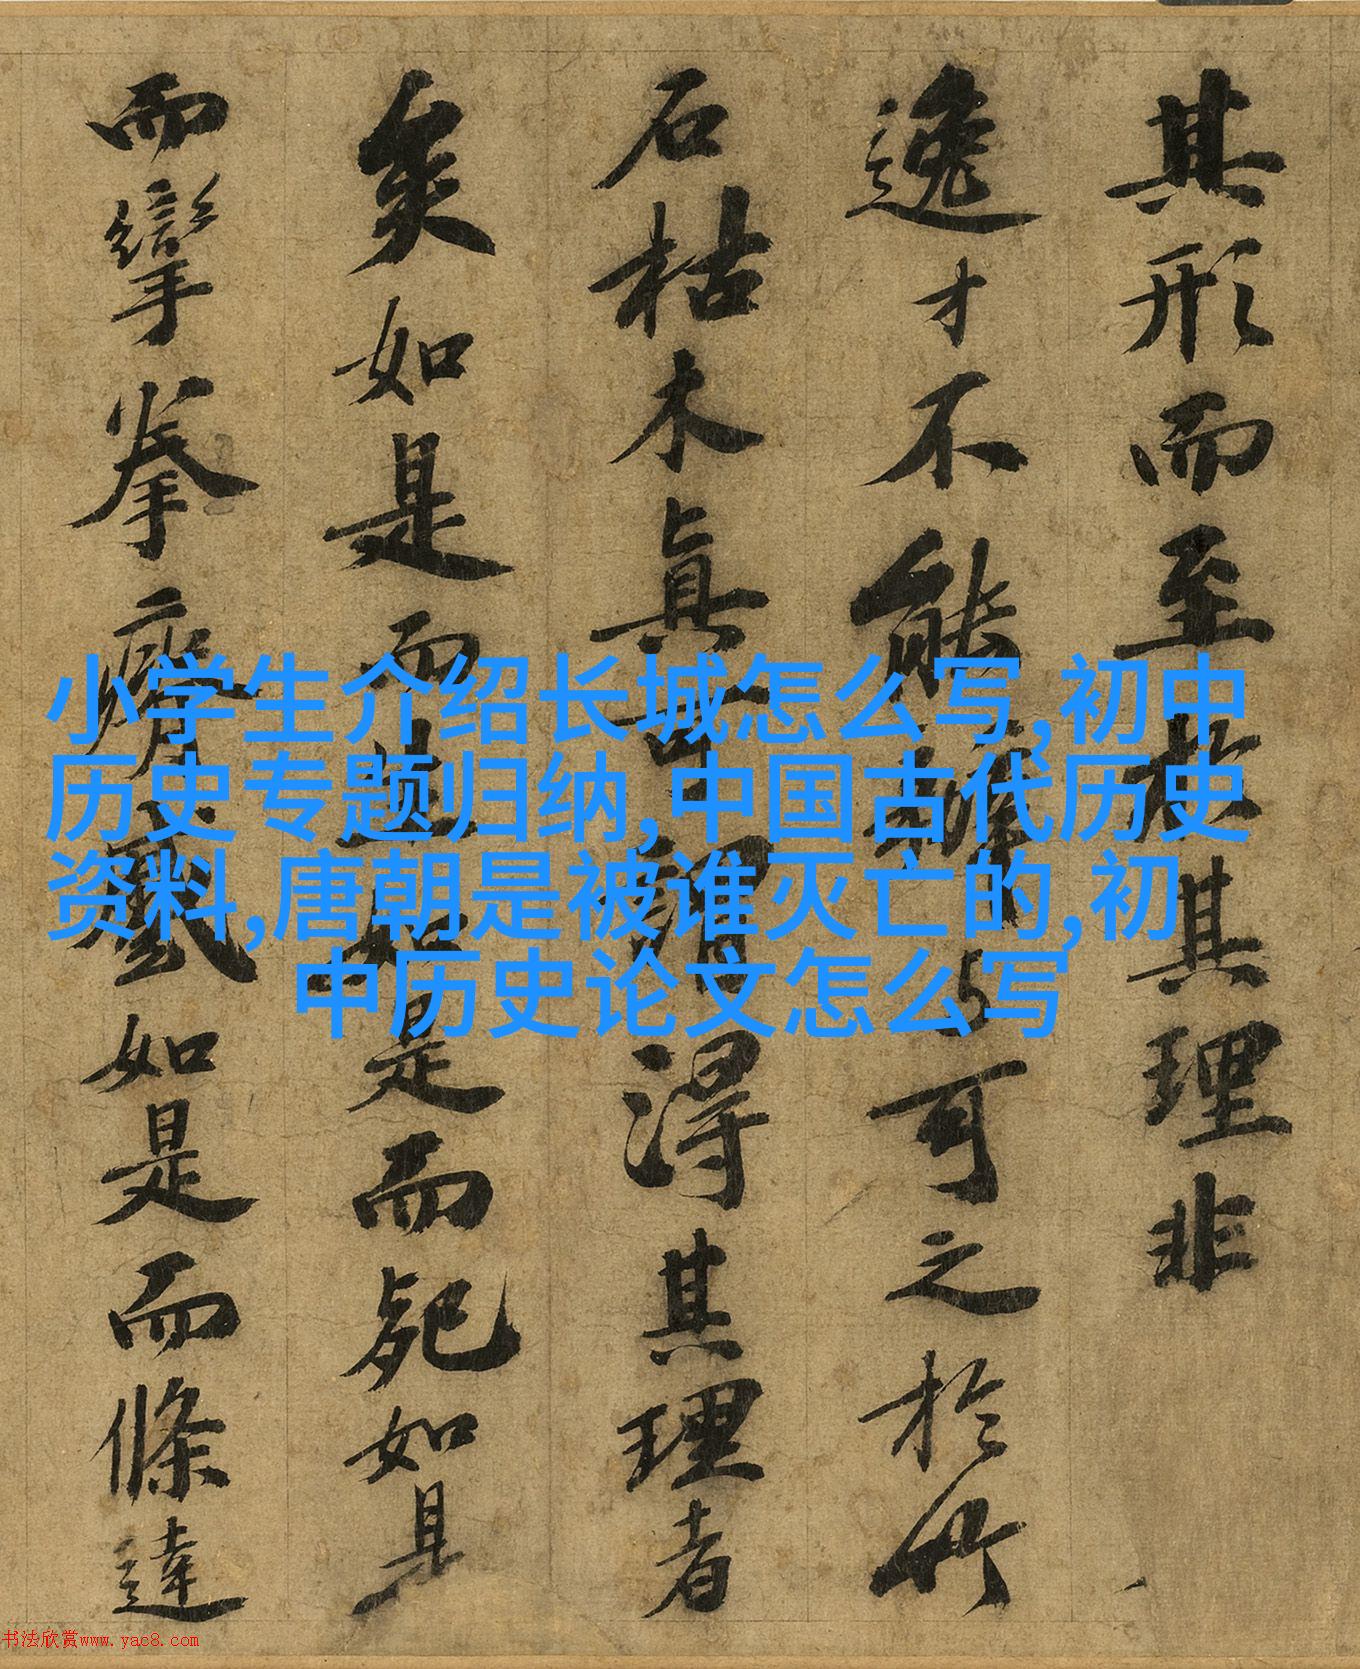 其形而至於其理非
逸才不能辨与可之於竹
石枯木真可謂得其理者
矣如是而生如是而死如是
而攣拳瘠蹙如是而條達
小学生介绍长城怎么写,初中
历史专题归纳,中国古代历史
资料,唐朝是被谁灭亡的,初
中历史论文怎么写
书法欣赏www.yac8.com